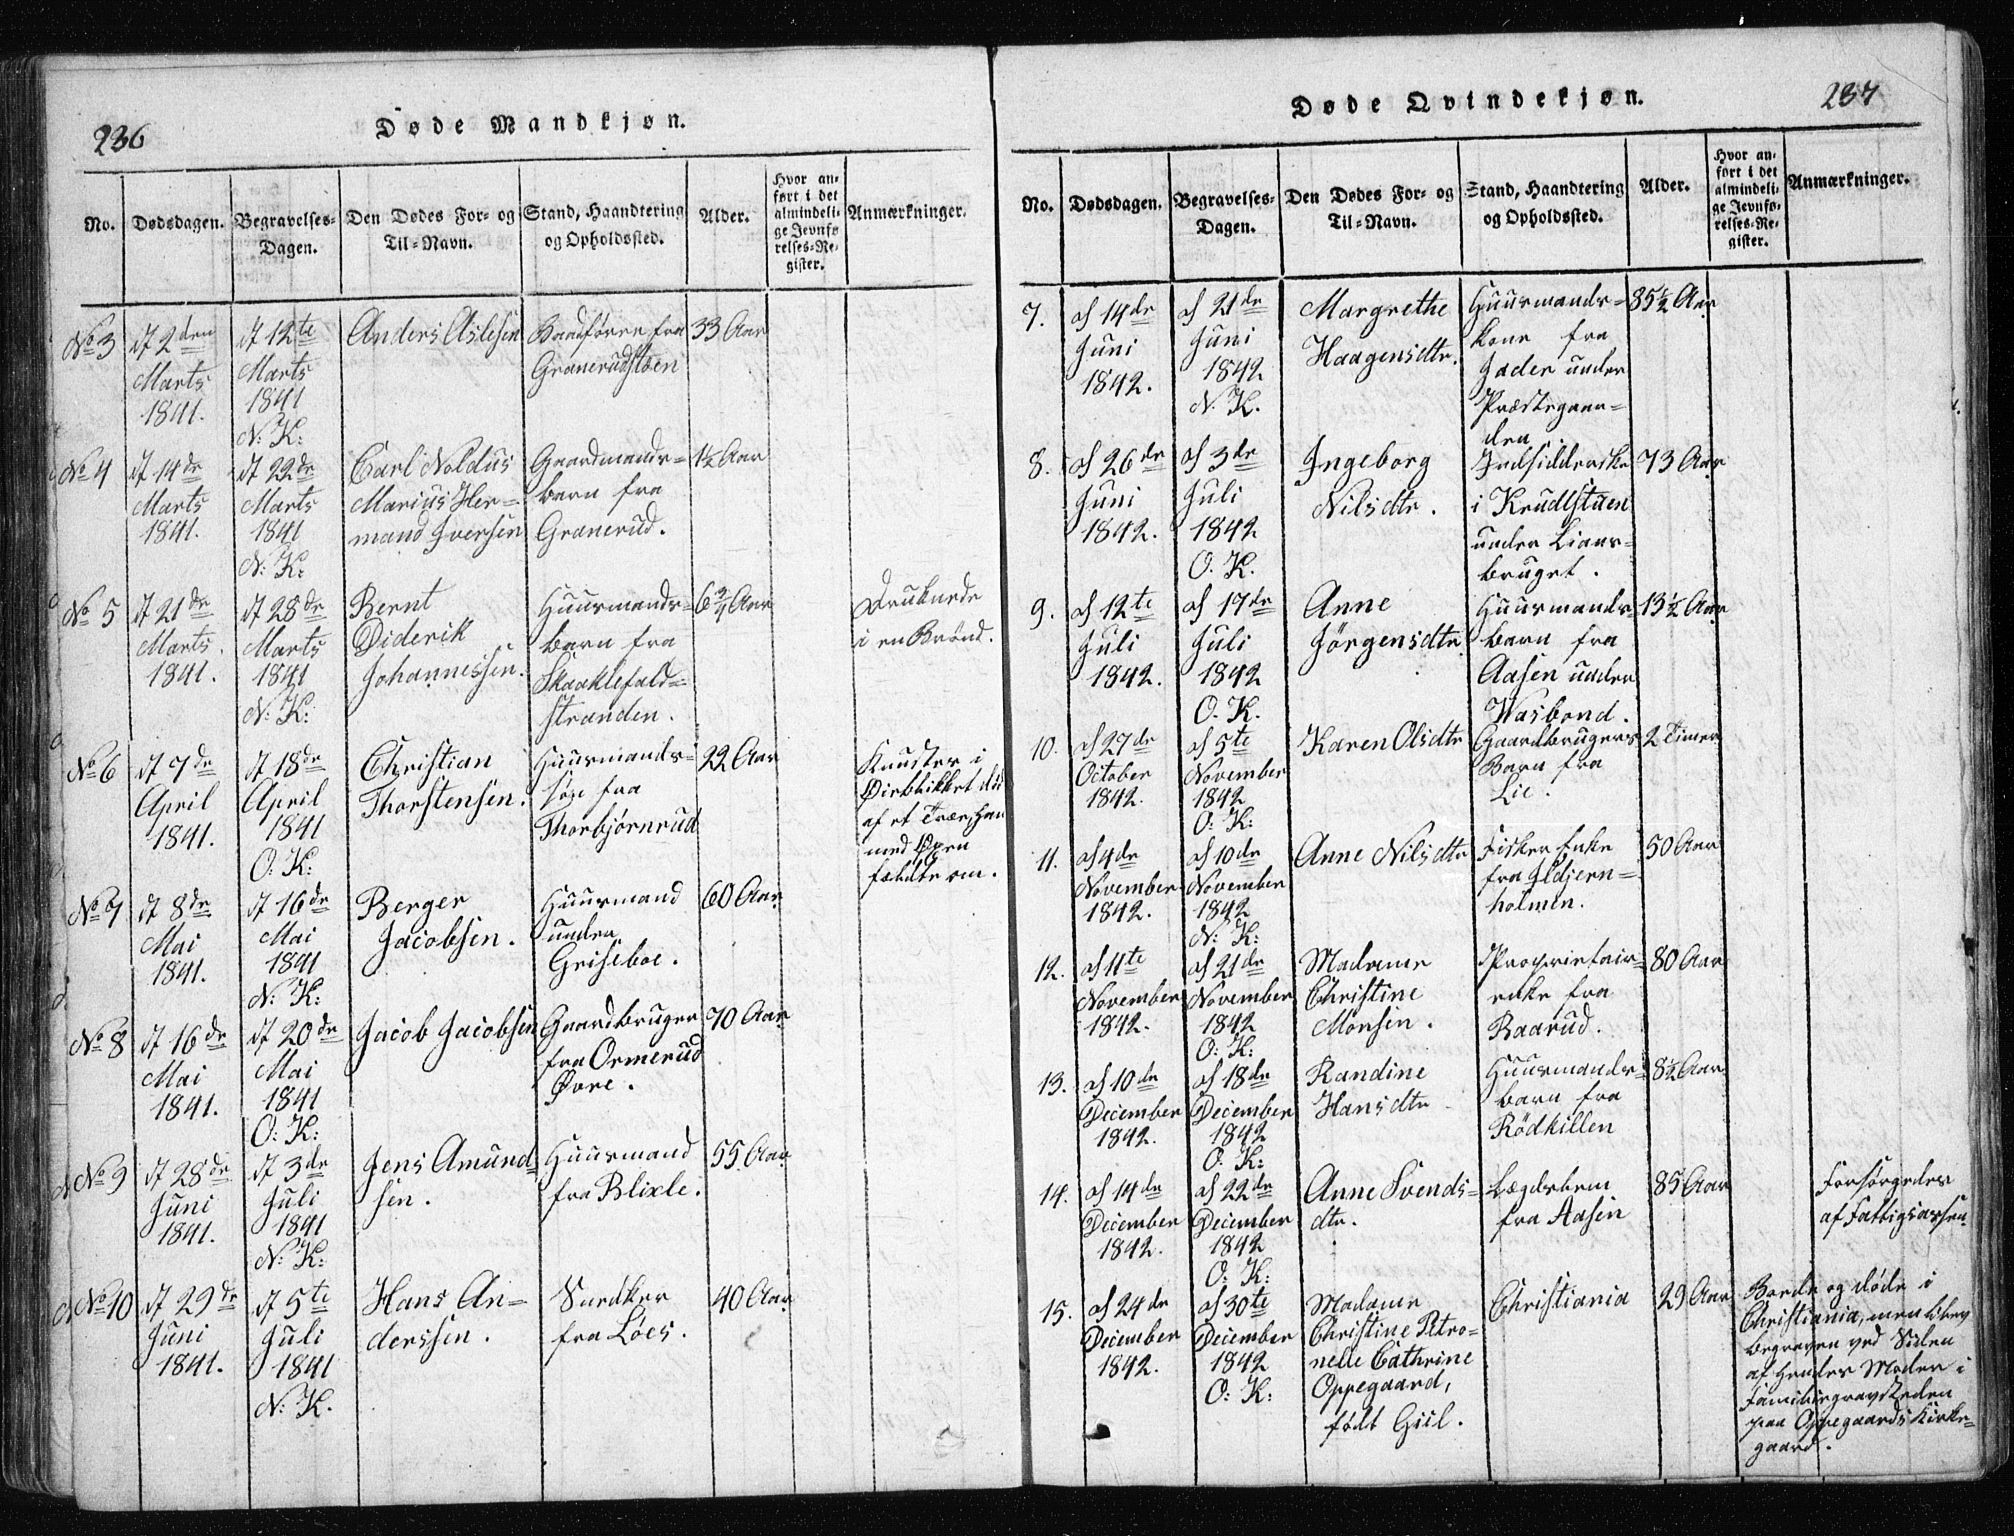 236
Døde Mandkjøn.
No.
Dødsdagen.
Begravelses-
Dagen.
Den Dødes For- og
Til-Navn.
Stand, Haandtering
og Opholdssted.
Alder.
Hvor an-
ført i det
almindeli-
ge Jevnfø-
relses-Re-
gister.
Anmærkninger.
No 3
d 2den
Marts
1841.
d 12te
Marts
1841
N: K:
Anders Aslesen
Baadfører fra
Granerudstøen
33 Aar
No 4
d 14de
Marts
1841.
d 22de
Marts
1841
N: K:
Carl Noldus
Marius Her-
mand Iversen
Gaardmands-
barn fra
Granerud.
1½ Aar
No 5
d 21de
Marts.
1841.
d 28de
Marts
1841
N: K:
Bernt
Diderik
Johannessen.
Huusmands-
barn fra
Skoklefald-
stranden.
6¾ Aar
Druknede
i en Brønd.
No 6
d 7de
April
1841.
d 18de
April
1841
O: K:
Christian
Thorstensen.
Huusmands-
søn fra
Thorbjørnrud
22 Aar
Knustes i
Øieblikket død
af et Træ, han
med Øxen
fældte om.
No 7
d 8de
Mai
1841.
d 16de
Mai
1841
N: K:
Berger
Jacobsen.
Huusmand
under
Griseboe.
60 Aar
No 8
d 16de
Mai
1841.
d 20de
Mai
1841
O: K:
Jacob Jacobsen
Gaardbruger
fra Ormerud
Øvre.
70 Aar
No 9
d 28de
Juni
1841.
d 3de
Juli
1841
N: K:
Jens Amund-
sen.
Huusmand
fra Blixle.
55 Aar
No 10
d 29de
Juni
1841.
d 5te
Juli
1841
N: K.
Hans An-
derssen.
Snedker
fra Løes.
40 Aar
237
Døde Qvindekjøn.
No.
Dødsdagen.
Begravelses-
Dagen.
Den Dødes For- og
Til-Navn.
Stand, Haandtering
og Opholdssted.
Alder.
Hvor an-
ført i det
almindeli-
ge Jevnfø-
relses-Re-
gister.
Anmærkninger.
7.
d 14de
Juni
1842.
d 21de
Juni
1842
N. K.
Margrethe
Haagensdtr.
Huusmands-
kone fra
Jader under
Præstegaar-
den
85½ Aar
8.
d 26de
Juni
1842.
d 3de
Juli
1842
O. K.
Ingeborg
Nilsdtr.
Indsidderske
i Krudtstuen
under Lians-
bruget.
73 Aar
9.
d 12te
Juli
1842.
d 17de
Juli
1842
O. K.
Anne
Jörgensdtr.
Huusmands-
barn fra
Aasen under
Wasbond.
13½ Aar
10.
d 27de
October
1842.
d 5te
November
1842
O: K:
Karen Olsdtr
Gaardbrugers
Barn fra
Lie.
2 Timer
11.
d 4de
November
1842.
d 10de
November
1842
N: K:
Anne Nilsdtr
Fisker Enke
fra Ildjern-
holmen.
50 Aar
12.
d 11te
November
1842.
d 21de
November
1842
O: K:
Madame
Christine
Monsen.
Proprietair-
enke fra
Baarud.
80 Aar
13.
d 10de
December
1842.
d 18de
December
1842
O. K:
Randine
Hansdtr
Huusmands-
barn fra
Rödkillen
8½ Aar
14.
d 14de
December
1842.
d 22de
December
1842
O: K:
Anne Svends-
dtr.
Lægdslem
fra Aasen
85 Aar
Forsørgedes
af Fattigkassen
15.
d 24de
December
1842.
d 30te
December
1842
O: K:
Madame
Christine Petro-
nelle Cathrine
Oppegaard,
født Giil.
Christiania
29 Aar
Boede og døde i
Christiania, men blev
begraven ved Siden
af hendes Moder i
Familiegravstedet
paa Oppegaards Kirke-
gaard.